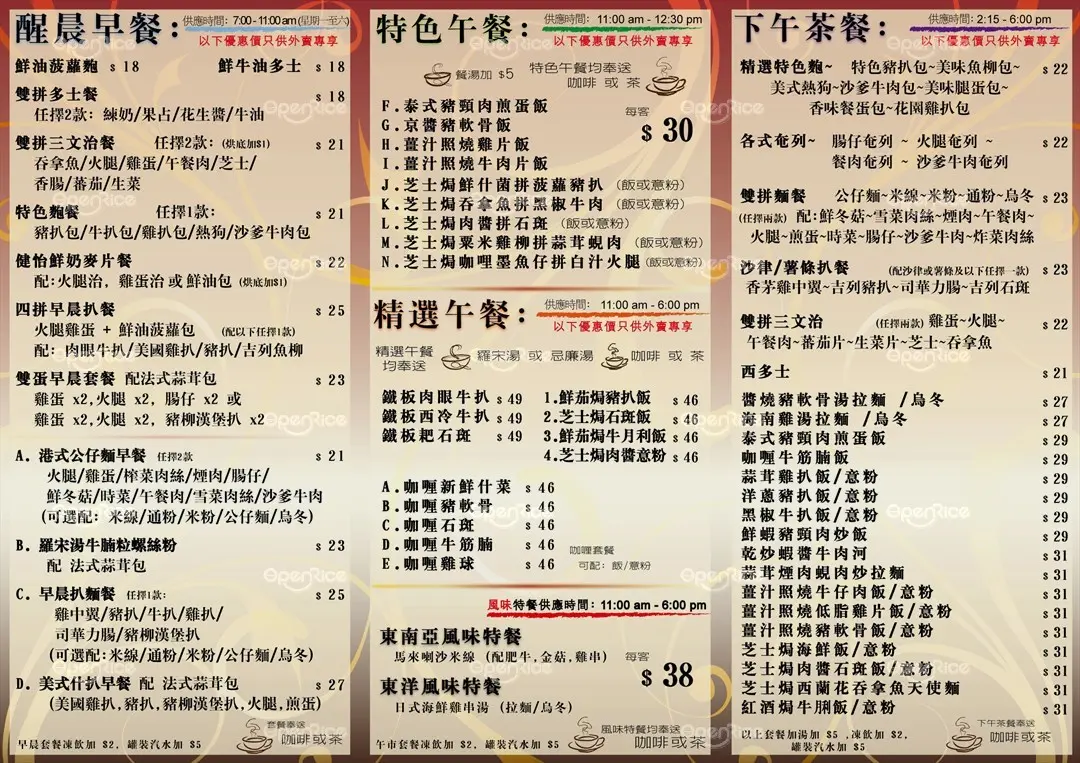 醒晨早餐:
供應時間: 7:00 - 11:00 am (星期一至六)
以下優惠價只供外賣專享
鮮油菠蘿麭 $ 18 鮮牛油多士 $ 18
雙拼多士餐 $ 18
任擇2款: 煉奶/果占/花生醬/牛油
雙拼三文治餐 任擇2款: (烘底加$1) $ 21
吞拿魚/火腿/雞蛋/午餐肉/芝士/
香腸/蕃茄/生菜
特色麭餐 任擇1款: $ 21
豬扒包/牛扒包/雞扒包/熱狗/沙爹牛肉包
健怡鮮奶麥片餐 $ 22
配:火腿治, 雞蛋治 或 鮮油包 (烘底加$1)
四拼早晨扒餐 $ 25
火腿雞蛋 + 鮮油菠蘿包 (配以下任擇1款)
配: 肉眼牛扒/美國雞扒/豬扒/吉列魚柳
雙蛋早晨套餐 配法式蒜茸包 $ 23
雞蛋 x2,火腿 x2, 腸仔 x2 或
雞蛋 x2,火腿 x2, 豬柳漢堡扒 x2
A. 港式公仔麵早餐 任擇2款 $ 21
火腿/雞蛋/榨菜肉絲/煙肉/腸仔/
鮮冬菇/時菜/午餐肉/雪菜肉絲/沙爹牛肉
(可選配: 米線/通粉/米粉/公仔麵/烏冬)
B. 羅宋湯牛腩粒螺絲粉 $ 23
配 法式蒜茸包
C. 早晨扒麵餐 任擇1款: $ 25
雞中翼/豬扒/牛扒/雞扒/
司華力腸/豬柳漢堡扒
(可選配:米線/通粉/米粉/公仔麵/烏冬)
D. 美式什扒早餐 配 法式蒜茸包 $ 27
(美國雞扒,豬扒,豬柳漢堡扒,火腿,煎蛋)
套餐奉送
咖啡或茶
早晨套餐凍飲加 $2, 罐裝汽水加 $5
特色午餐:
供應時間: 11:00 am - 12:30 pm
以下優惠價只供外賣專享
餐湯加 $5 特色午餐均奉送
咖啡 或 茶
F.泰式豬頸肉煎蛋飯
G.京醬豬軟骨飯
H.薑汁照燒雞片飯
I.薑汁照燒牛肉片飯
J.芝士焗鮮什菌拼菠蘿豬扒 (飯或意粉)
K.芝士焗吞拿魚拼黑椒牛肉 (飯或意粉)
L.芝士焗肉醬拼石斑 (飯或意粉)
M.芝士焗粟米雞柳拼蒜茸蜆肉 (飯或意粉)
N.芝士焗咖喱墨魚仔拼白汁火腿 (飯或意粉)
每客
$ 30
精選午餐:
供應時間: 11:00 am - 6:00 pm
以下優惠價只供外賣專享
精選午餐
均奉送
羅宋湯 或 忌廉湯 咖啡 或 茶
鐵板肉眼牛扒 $ 49
鐵板西冷牛扒 $ 49
鐵板耙石斑 $ 49
1.鮮茄焗豬扒飯 $ 46
2.芝士焗石斑飯 $ 46
3.鮮茄焗牛月利飯 $ 46
4.芝士焗肉醬意粉 $ 46
A.咖喱新鮮什菜 $ 46
B.咖喱豬軟骨 $ 46
C.咖喱石斑 $ 46
D.咖喱牛筋腩 $ 46
E.咖喱雞球 $ 46
咖喱套餐
可配: 飯/意粉
風味特餐供應時間: 11:00 am - 6:00 pm
東南亞風味特餐
馬來喇沙米線 (配肥牛,金菇,雞串)
東洋風味特餐
日式海鮮雞串湯 (拉麵/烏冬)
每客
$ 38
風味特餐均奉送
咖啡或茶
午市套餐凍飲加 $2, 罐裝汽水加 $5
下午茶餐:
供應時間: 2:15 - 6:00 pm
以下優惠價只供外賣專享
精選特色麭~ 特色豬扒包~美味魚柳包~ $ 22
美式熱狗~沙爹牛肉包~美味腿蛋包~
香味餐蛋包~花園雞扒包
各式奄列~ 腸仔奄列 ~ 火腿奄列 ~ $ 22
餐肉奄列 ~ 沙爹牛肉奄列
雙拼麵餐 公仔麵~米線~米粉~通粉~烏冬 $ 23
(任擇兩款) 配:鮮冬菇~雪菜肉絲~煙肉~午餐肉~
火腿~煎蛋~時菜~腸仔~沙爹牛肉~炸菜肉絲
沙律/薯條扒餐 (配沙律或薯條及以下任擇一款) $ 23
香茅雞中翼~吉列豬扒~司華力腸~吉列石斑
雙拼三文治 (任擇兩款) 雞蛋~火腿~ $ 22
午餐肉~蕃茄片~生菜片~芝士~吞拿魚
西多士 $ 21
醬燒豬軟骨湯拉麵 /烏冬 $ 27
海南雞湯拉麵 /烏冬 $ 27
泰式豬頸肉煎蛋飯 $ 29
咖喱牛筋腩飯 $ 29
蒜茸雞扒飯/意粉 $ 29
洋蔥豬扒飯/意粉 $ 29
黑椒牛扒飯/意粉 $ 29
鮮蝦豬頸肉炒飯 $ 29
乾炒蝦醬牛肉河 $ 31
蒜茸煙肉蜆肉炒拉麵 $ 31
薑汁照燒牛仔肉飯/意粉 $ 31
薑汁照燒低脂雞片飯/意粉 $ 31
薑汁照燒豬軟骨飯/意粉 $ 31
芝士焗海鮮飯/意粉 $ 31
芝士焗肉醬石斑飯/意粉 $ 31
芝士焗西蘭花吞拿魚天使麵 $ 31
紅酒焗牛脷飯/意粉 $ 31
下午茶餐奉送
咖啡或茶
以上套餐加湯加 $5 ,凍飲加 $2,
罐裝汽水加 $5